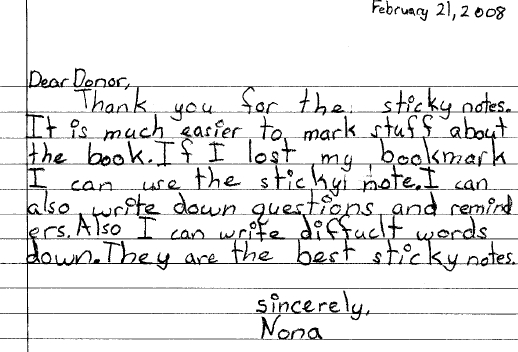 February 21, 2008
Dear Donor,
Thank you for the sticky notes.
It is much easier to mark stuff about
the book. If I lost my bookmark
I can use the stickyi note. I can
also write down questions and remind
ers. Also I can write diffuclt words
down. They are the best sticky notes.
sincerely,
Nona